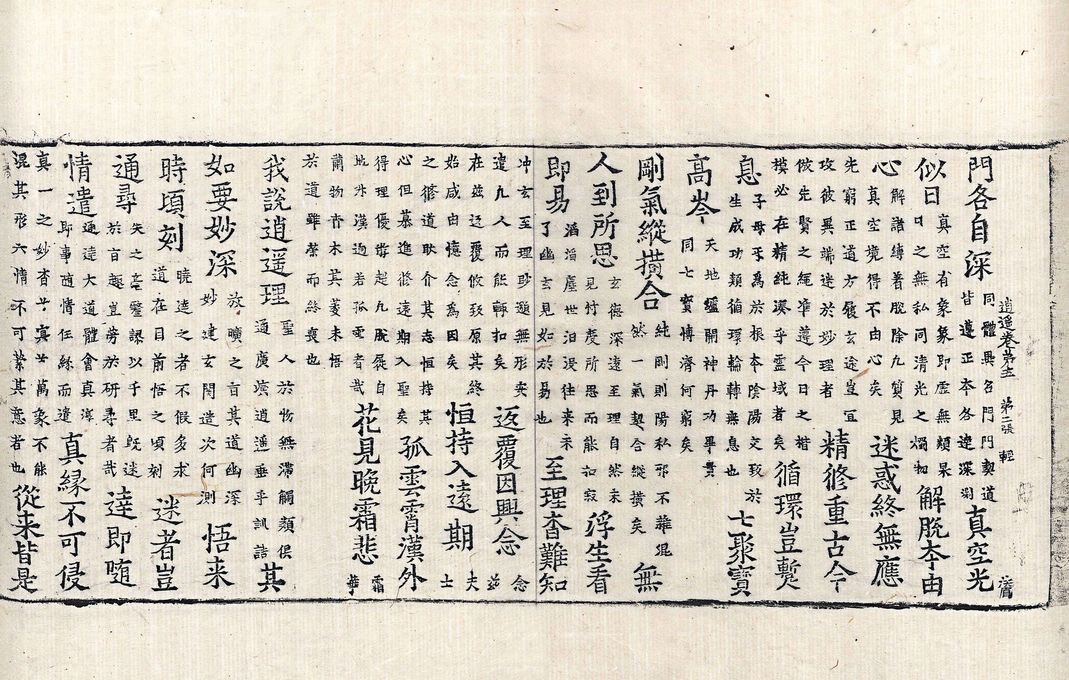 逍遥卷第五 第二張 輕
門各自深
同體異名門門契道
皆遵正本各達深洞
真空光
似日
真空有象象即虛無顯杲
日之無私同清光之燭物
解脫本由
心
解諸縛着脫除九質見
真空境得不由心矣
迷惑終無應
先窮正道方履玄途豈宜
攻彼異端迷於妙理者
精修重古今
倣先賢之繩準遵今日之楷
模必在精純湊乎靈域者矣
循環豈蹔
息
子母互為於根本陰陽交致於
生成功類循環輪轉無息也
七聚寶
高岑
天地爐開神丹功畢貫
同七寶博濟何窮矣
剛氣縱橫合
純剛則陽私邪不雜混
然一氣契合縱橫矣
無
人到所思
玄德深遠至理自然未
見忖度所思而能扣寂
浮生看
即易
滔滔塵世汩没往來未
了幽玄見如於易也
至理杳難知
冲玄至理眇邈無形安
遣凡人而能輙扣矣
返覆因興念
念茲
在茲返覆攸致原其終
始咸由憶念為因矣
恒持入遠期
夫士
之修道耿介其志恒持其
心但慕進修遠期入聖矣
孤雲霄漢外
得理優游起九展自
地外漢過若孤雲者哉
花見晚霜悲
霜華
肅物青木其萎未悟
於道雖榮而終喪也
我說逍遥理
聖人於物無滯觸類俱
通廣演逍遥垂乎訓誥
其
如要妙深
放曠之旨其道幽深
妙建玄関造次何測
悟来
時頃刻
曉達之者不假多求
道在目前悟之頃刻
迷者豈
通尋
失之毫釐謬以千里既迷
於旨趣豈勞於研尋者哉
達即随
情遣
通達大道體會真淳
即事随情任縁而遣
真縁不可侵
真一之妙杳兮冥兮萬象不能
混其形六情不可縈其慮者也
從来皆是